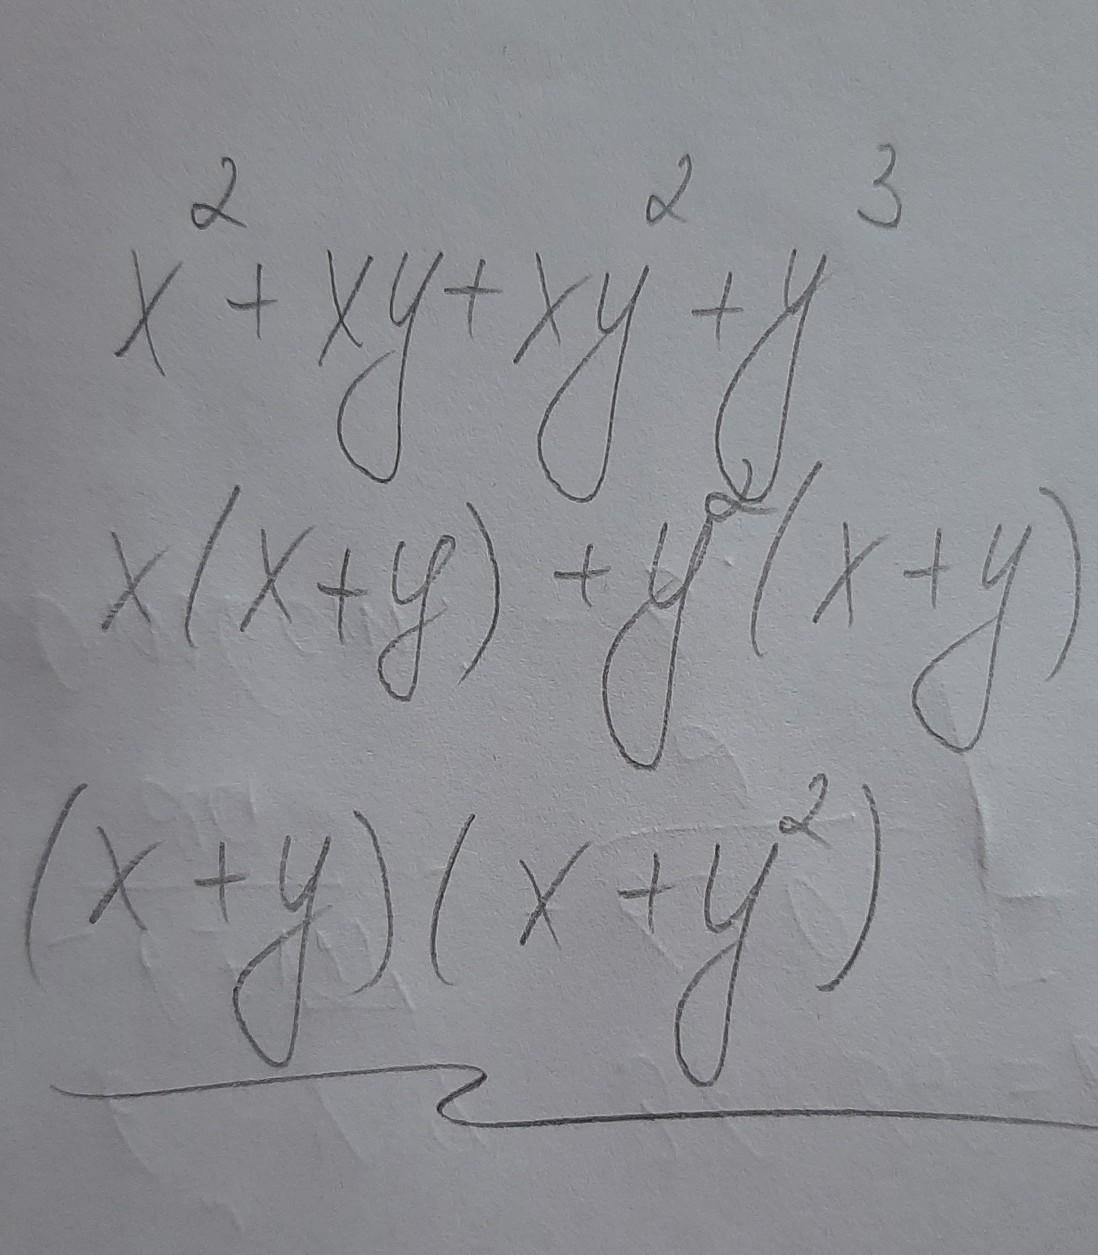 x² + xy + xy² + y³
x(x+y) + y²(x+y)
(x+y)(x+y²)